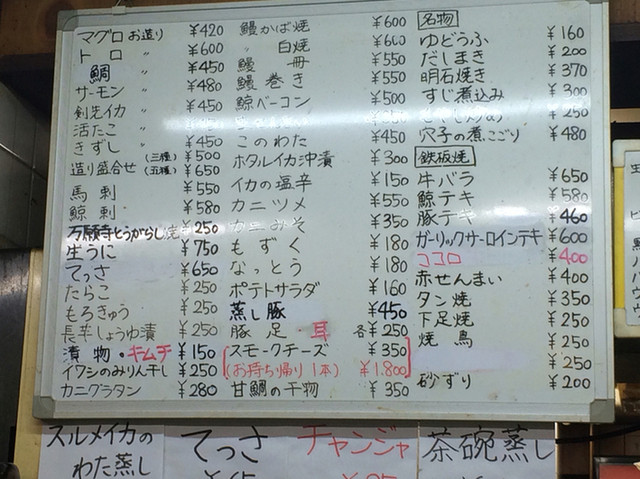 マグロお造り ¥420
トロ 〃 ¥600
鯛 〃 ¥450
サーモン 〃 ¥480
剣先イカ 〃 ¥450
活たこ 〃
きずし 〃 ¥450
造り盛合せ (三種) ¥500
(五種) ¥650
馬刺 ¥550
鯨刺 ¥580
万願寺とうがらし焼 ¥250
生うに ¥750
てっさ ¥650
たらこ ¥250
もろきゅう ¥250
長芋しょうゆ漬 ¥250
漬物・キムチ ¥150
イワシのみりん干し ¥250
カニグラタン ¥280
鰻かば焼 ¥600
〃 白焼 ¥600
鰻 冊 ¥550
鰻巻き ¥550
鯨ベーコン ¥500
このわた ¥450
ホタルイカ沖漬 ¥300
イカの塩辛 ¥150
カニツメ ¥550
カニみそ ¥350
もずく ¥180
なっとう ¥180
ポテトサラダ ¥160
蒸し豚 ¥450
豚足・耳 各¥250
スモークチーズ ¥350
(お持ち帰り1本) ¥1.800
甘鯛の干物 ¥350
名物
ゆどうふ ¥160
だしまき ¥200
明石焼き ¥370
すじ煮込み ¥300
¥250
穴子の煮こごり ¥480
鉄板焼
牛バラ ¥650
鯨テキ ¥580
豚テキ ¥460
ガーリックサーロインテキ ¥600
ココロ ¥400
赤せんまい ¥400
タン焼 ¥350
下足焼 ¥250
焼鳥 ¥250
¥250
砂ずり ¥200
スルメイカの
わた蒸し
てっさ
チャンジャ
茶碗蒸し